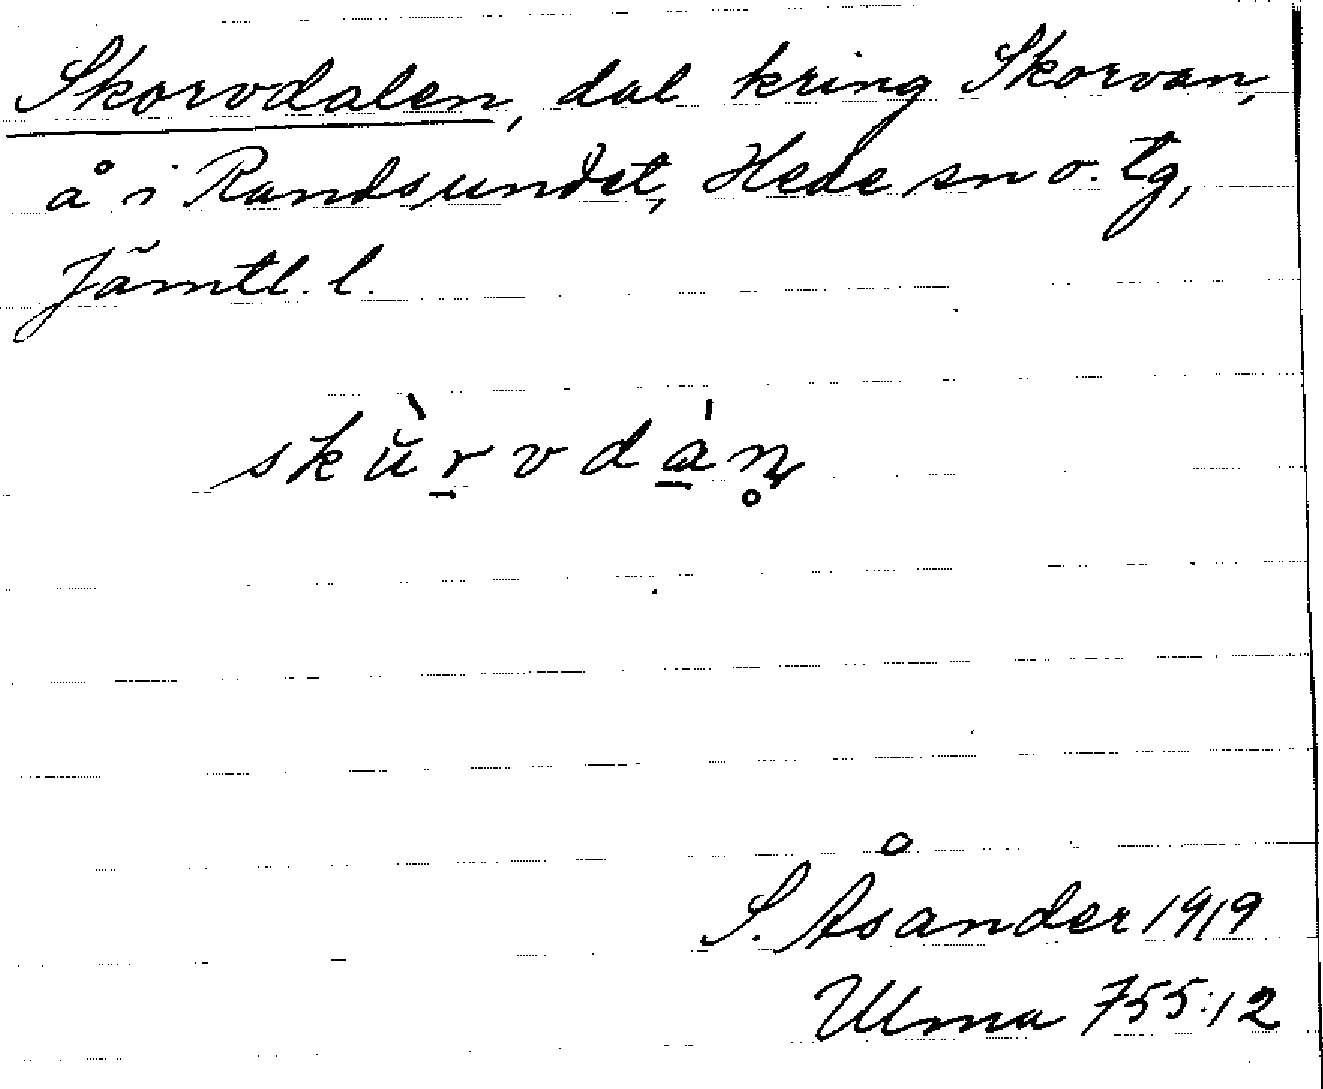 Skorvdalen, dal kring Skorvan,
å i Randsundet, Hede sn o. tg,
Jämtl. l.
skŭ̀r̠vdá̠n̥
S. Åsander 1919
Ulma 755:12